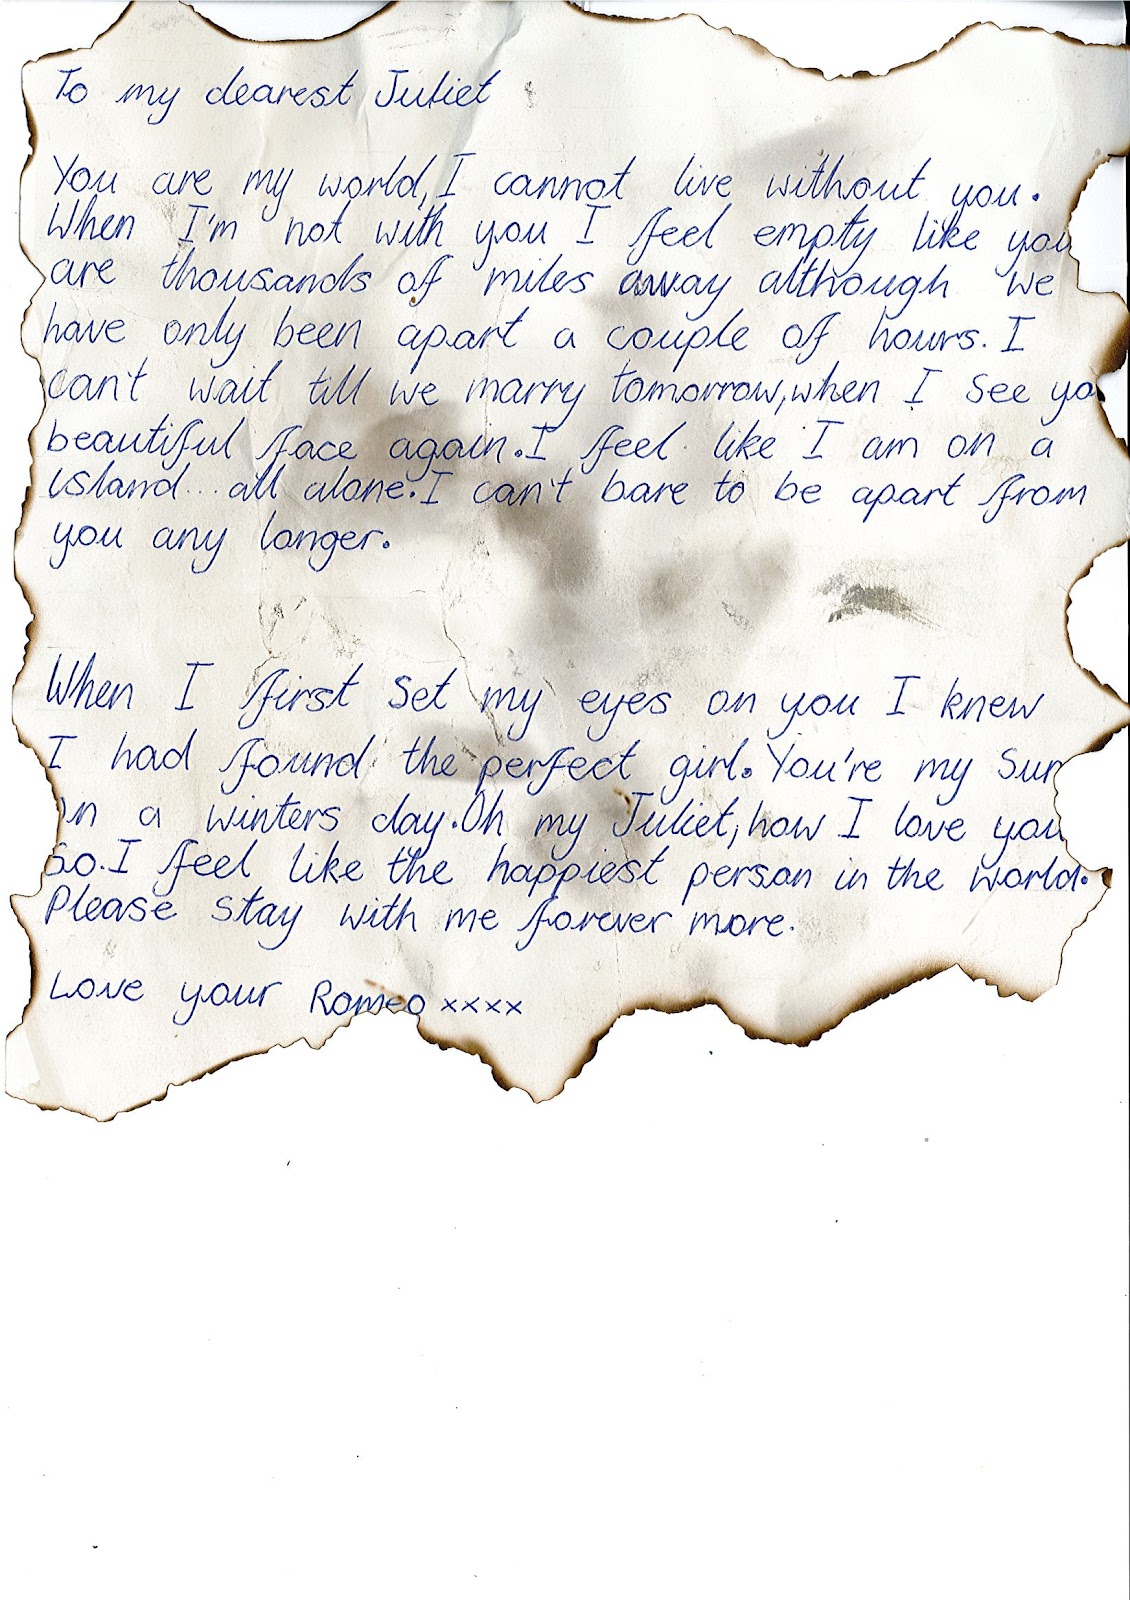 To my dearest Juliet
You are my world, I cannot live without you.
When I'm not with you I feel empty like you
are thousands of miles away although we
have only been apart a couple of hours. I
can't wait till we marry tomorrow, when I see yo
beautiful face again. I feel like I am on a
island... all alone. I can't bare to be apart from
you any longer.
When I first set my eyes on you I knew
I had found the perfect girl. You're my Sun
in a winters day. Oh my Juliet, how I love you
so. I feel like the happiest person in the world.
Please stay with me forever more.
Love your Romeo xxxx